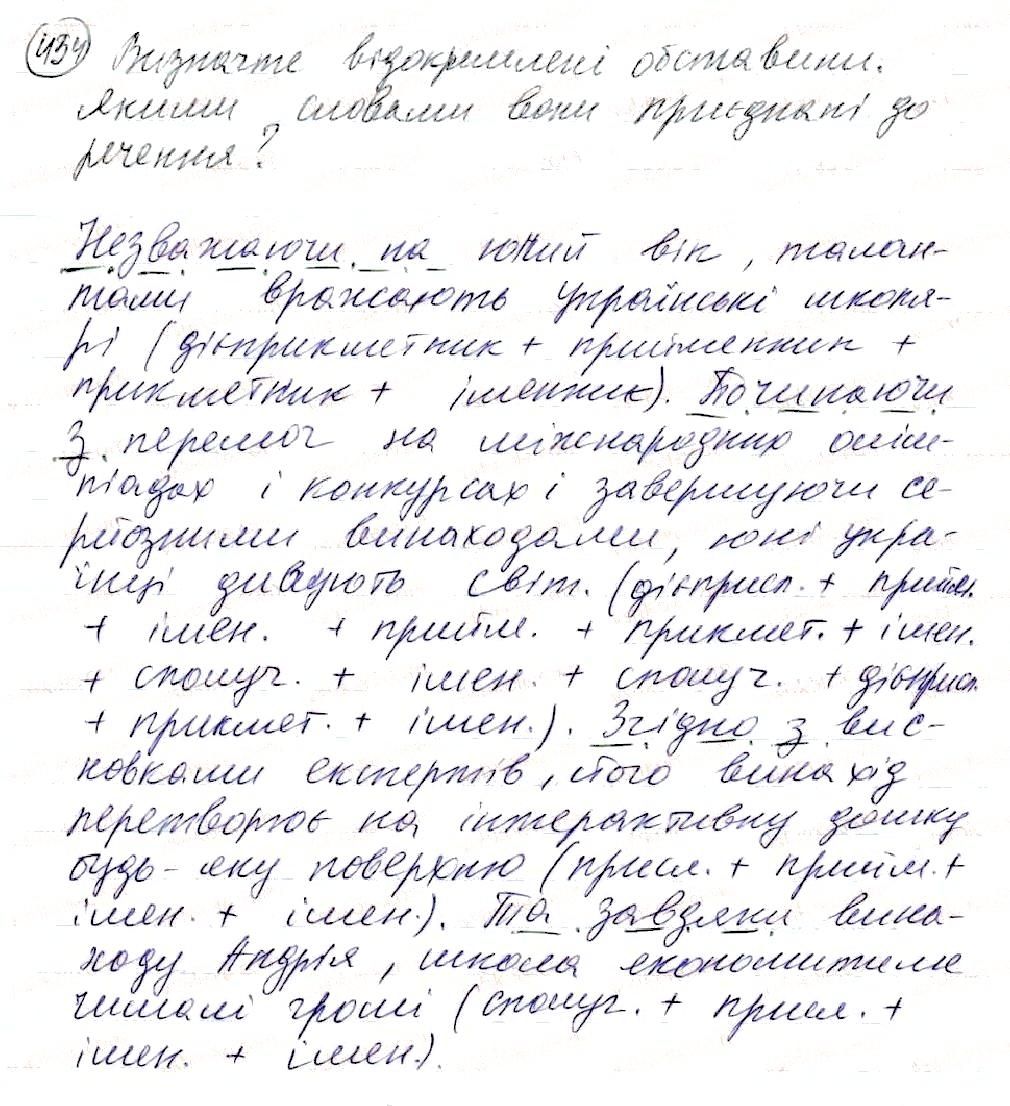 434 Визначте відокремлені обставини.
Якими словами вони приєднані до
речення?
Незважаючи на юний вік, талан-
тами вражають українські школя-
рі (дієприкметник + прийменник +
прикметник + іменник). Починаючи
з перемог на міжнародних олім-
піадах і конкурсах і завершуючи се-
рйозними винаходами, юні укра-
їнці дивують світ. (дієприсл. + прийм.
+ імен. + прийм. + прикмет. + імен.
+ сполуч. + імен. + сполуч. + дієприсл.
+ прикмет. + імен.). Згідно з вис-
новками експертів, його винахід
перетворює на інтерактивну дошку
будь-яку поверхню (присл. + прийм. +
імен. + імен.). Та завдяки вина-
ходу Андрія, школа економитиме
чималі гроші (сполуч. + присл. +
імен. + імен.).